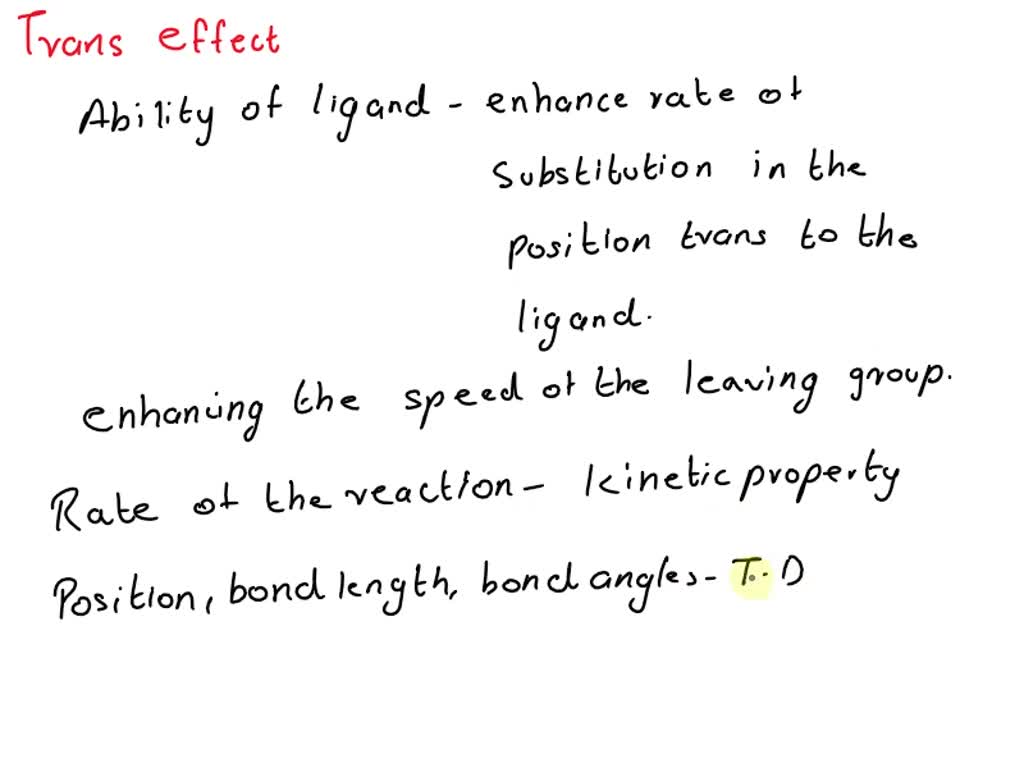 Trans effect
Ability of ligand - enhance rate of
substitution in the
position trans to the
ligand.
enhancing the speed of the leaving group.
Rate of the reaction - kinetic property
Position, bond length, bond angles - T.D